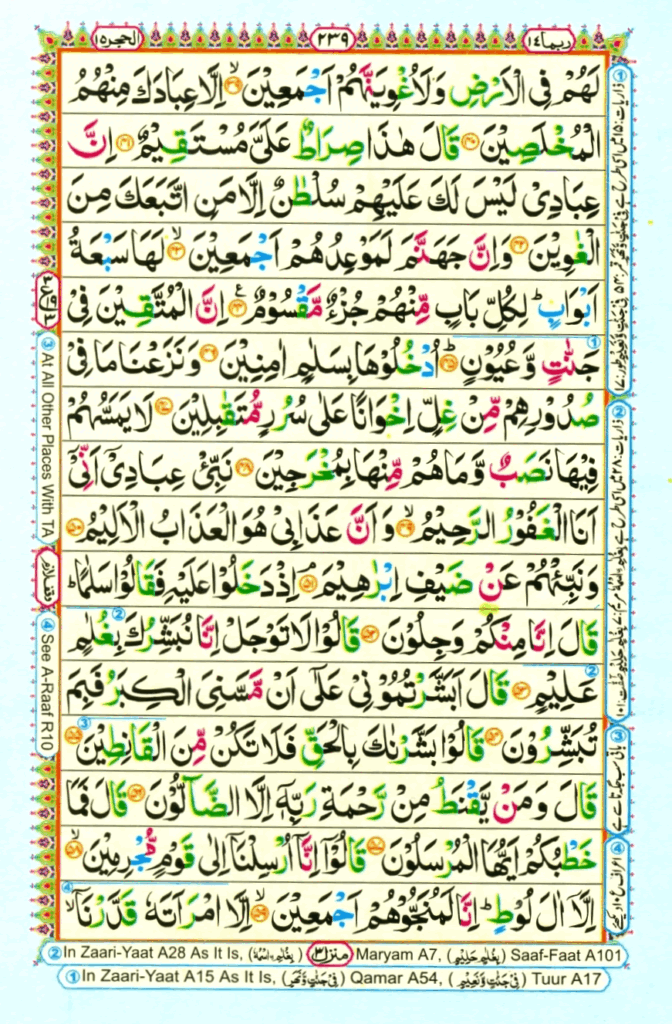 ربما ١٤
٢٣٩
الحجر ١٥
لَهُمْ فِى الْاَرْضِ وَلَاُغْوِيَنَّهُمْ اَجْمَعِيْنَ ۙ﴿۳۹﴾ اِلَّا عِبَادَكَ مِنْهُمُ
الْمُخْلَصِيْنَ ﴿۴۰﴾ قَالَ هٰذَا صِرَاطٌ عَلَىَّ مُسْتَقِيْمٌ ﴿۴۱﴾ اِنَّ
عِبَادِىْ لَيْسَ لَكَ عَلَيْهِمْ سُلْطٰنٌ اِلَّا مَنِ اتَّبَعَكَ مِنَ
الْغٰوِيْنَ ﴿۴۲﴾ وَاِنَّ جَهَنَّمَ لَمَوْعِدُهُمْ اَجْمَعِيْنَ ۙ﴿۴۳﴾ لَهَا سَبْعَةُ
اَبْوَابٍ ؕ لِكُلِّ بَابٍ مِّنْهُمْ جُزْءٌ مَّقْسُوْمٌ ﴿۴۴﴾ اِنَّ الْمُتَّقِيْنَ فِىْ
جَنّٰتٍ وَّعُيُوْنٍ ؕ﴿۴۵﴾ اُدْخُلُوْهَا بِسَلٰمٍ اٰمِنِيْنَ ﴿۴۶﴾ وَنَزَعْنَا مَا فِىْ
صُدُوْرِهِمْ مِّنْ غِلٍّ اِخْوَانًا عَلٰى سُرُرٍ مُّتَقٰبِلِيْنَ ﴿۴۷﴾ لَا يَمَسُّهُمْ
فِيْهَا نَصَبٌ وَّمَا هُمْ مِّنْهَا بِمُخْرَجِيْنَ ﴿۴۸﴾ نَبِّئْ عِبَادِىْۤ اَنِّىْۤ
اَنَا الْغَفُوْرُ الرَّحِيْمُ ۙ﴿۴۹﴾ وَاَنَّ عَذَابِىْ هُوَ الْعَذَابُ الْاَلِيْمُ ﴿۵۰﴾
وَنَبِّئْهُمْ عَنْ ضَيْفِ اِبْرٰهِيْمَ ۘ﴿۵۱﴾ اِذْ دَخَلُوْا عَلَيْهِ فَقَالُوْا سَلٰمًا ؕ
قَالَ اِنَّا مِنْكُمْ وَجِلُوْنَ ﴿۵۲﴾ قَالُوْا لَا تَوْجَلْ اِنَّا نُبَشِّرُكَ بِغُلٰمٍ
عَلِيْمٍ ﴿۵۳﴾ قَالَ اَبَشَّرْتُمُوْنِىْ عَلٰٓى اَنْ مَّسَّنِىَ الْكِبَرُ فَبِمَ
تُبَشِّرُوْنَ ﴿۵۴﴾ قَالُوْا بَشَّرْنٰكَ بِالْحَقِّ فَلَا تَكُنْ مِّنَ الْقٰنِطِيْنَ ﴿۵۵﴾
قَالَ وَمَنْ يَّقْنَطُ مِنْ رَّحْمَةِ رَبِّهٖۤ اِلَّا الضَّآلُّوْنَ ﴿۵۶﴾ قَالَ فَمَا
خَطْبُكُمْ اَيُّهَا الْمُرْسَلُوْنَ ﴿۵۷﴾ قَالُوْۤا اِنَّاۤ اُرْسِلْنَاۤ اِلٰى قَوْمٍ مُّجْرِمِيْنَ ۙ﴿۵۸﴾
اِلَّاۤ اٰلَ لُوْطٍ ؕ اِنَّا لَمُنَجُّوْهُمْ اَجْمَعِيْنَ ۙ﴿۵۹﴾ اِلَّا امْرَاَتَهٗ قَدَّرْنَاۤ ۙ
③ At All Other Places With TA
④ See A-Raaf R10
② In Zaari-Yaat A28 As It Is, Maryam A7, (بِغُلٰمٍ حَلِيْمٍ) Saaf-Faat A101
منزل ٣
① In Zaari-Yaat A15 As It Is, Qamar A54, (فِىْ جَنّٰتٍ وَّنَعِيْمٍ) Tuur A17